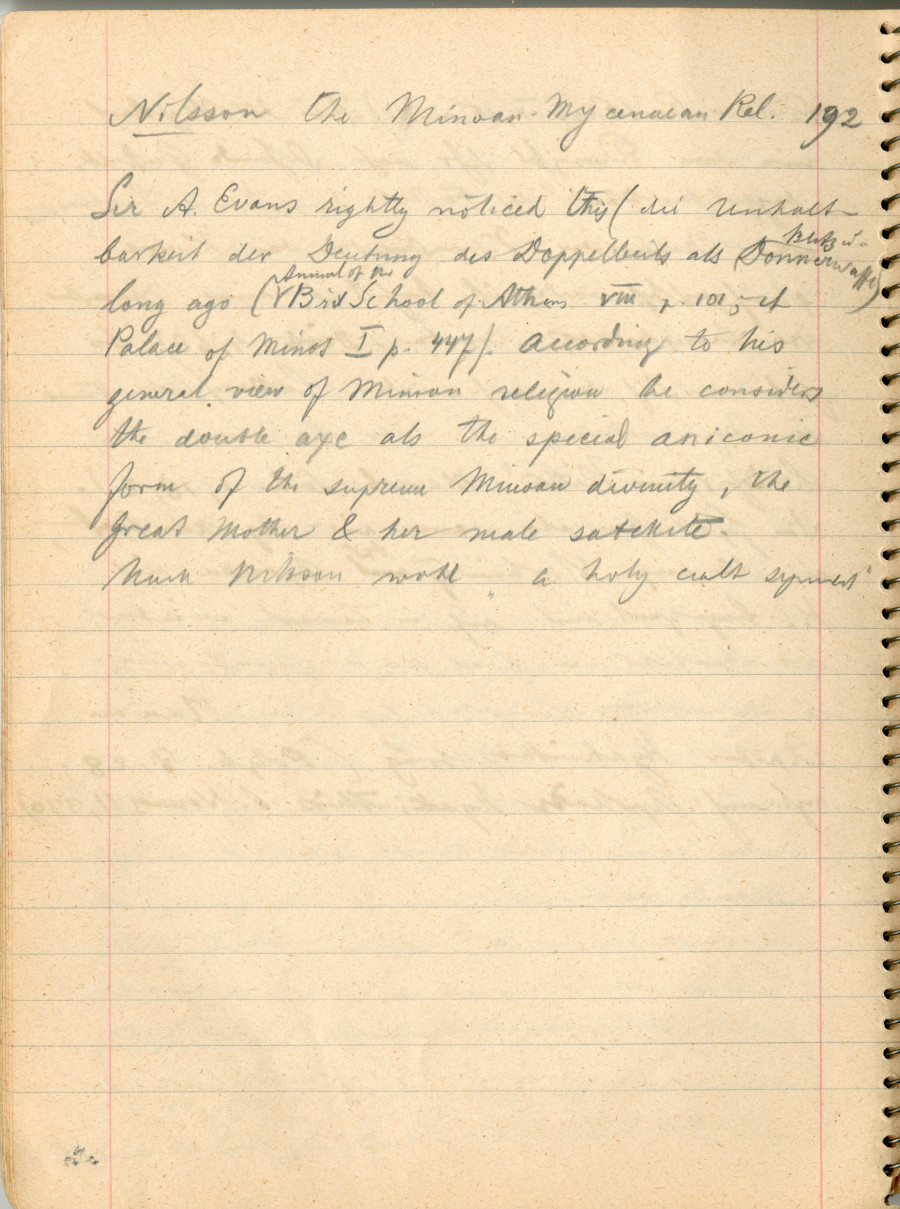 Nilsson the Minoan-Mycenaean Rel. 192
Sir A. Evans rightly noticed this (die Unhalt-
barkeit der Deutung des Doppelbeils als Blitz u. Donnerwaffe)
long ago (Annual of the Brit School of Athens VIII p. 101, cf
Palace of Minos I p. 447). According to his
general view of Minoan religion he considers
the double axe als the special aniconic
form of the supreme Minoan divinity, the
Great Mother & her male satellite.
Nach Nilsson wohl "a holy cult symbol"